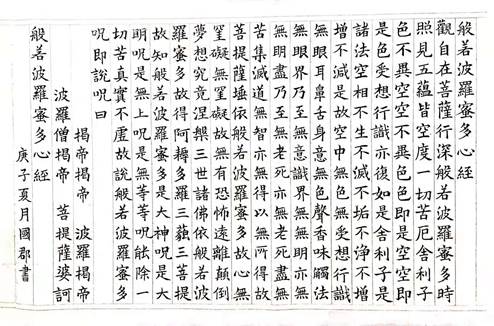 般若波羅蜜多心經
觀自在菩薩行深般若波羅蜜多時
照見五蘊皆空度一切苦厄舍利子
色不異空空不異色色即是空空即
是色受想行識亦復如是舍利子是
諸法空相不生不滅不垢不淨不增
增不減是故空中無色無受想行識
無眼耳鼻舌身意無色聲香味觸法
無眼界乃至無意識界無無明亦無
無明盡乃至無老死亦無老死盡無
苦集滅道無智亦無得以無所得故
菩提薩埵依般若波羅蜜多故心無
罣礙無罣礙故無有恐怖遠離顛倒
夢想究竟涅槃三世諸佛依般若波
羅蜜多故得阿耨多羅三藐三菩提
故知般若波羅蜜多是大神咒是大
明咒是無上咒是無等等咒能除一
切苦真實不虛故說般若波羅蜜多
咒即說咒曰
揭帝揭帝 波羅揭帝
波羅僧揭帝 菩提薩婆訶
般若波羅蜜多心經
庚子夏月國郡書